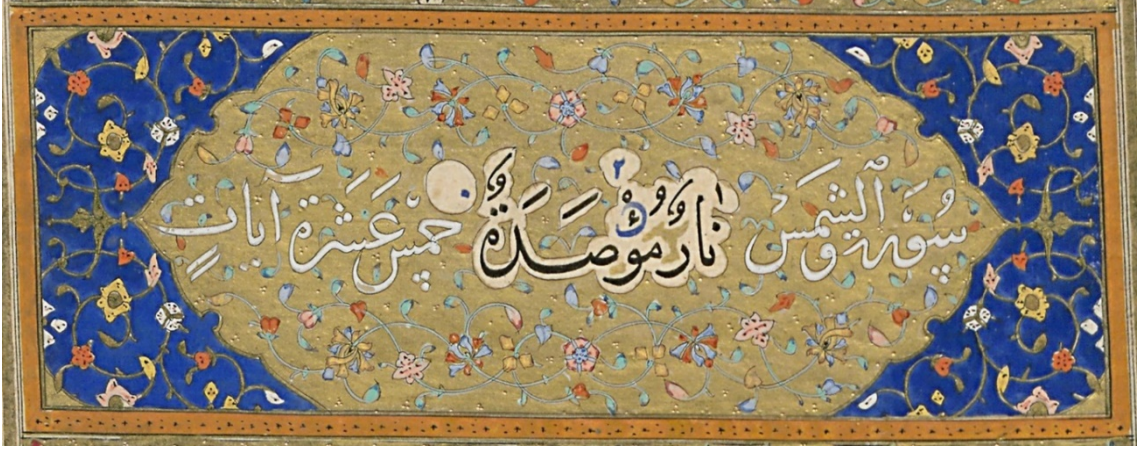 سُورَة وَٱلشَّمْس نَارٌ مُؤْصَدَةٌ خمْس عَشَرَة آيَاتٍ